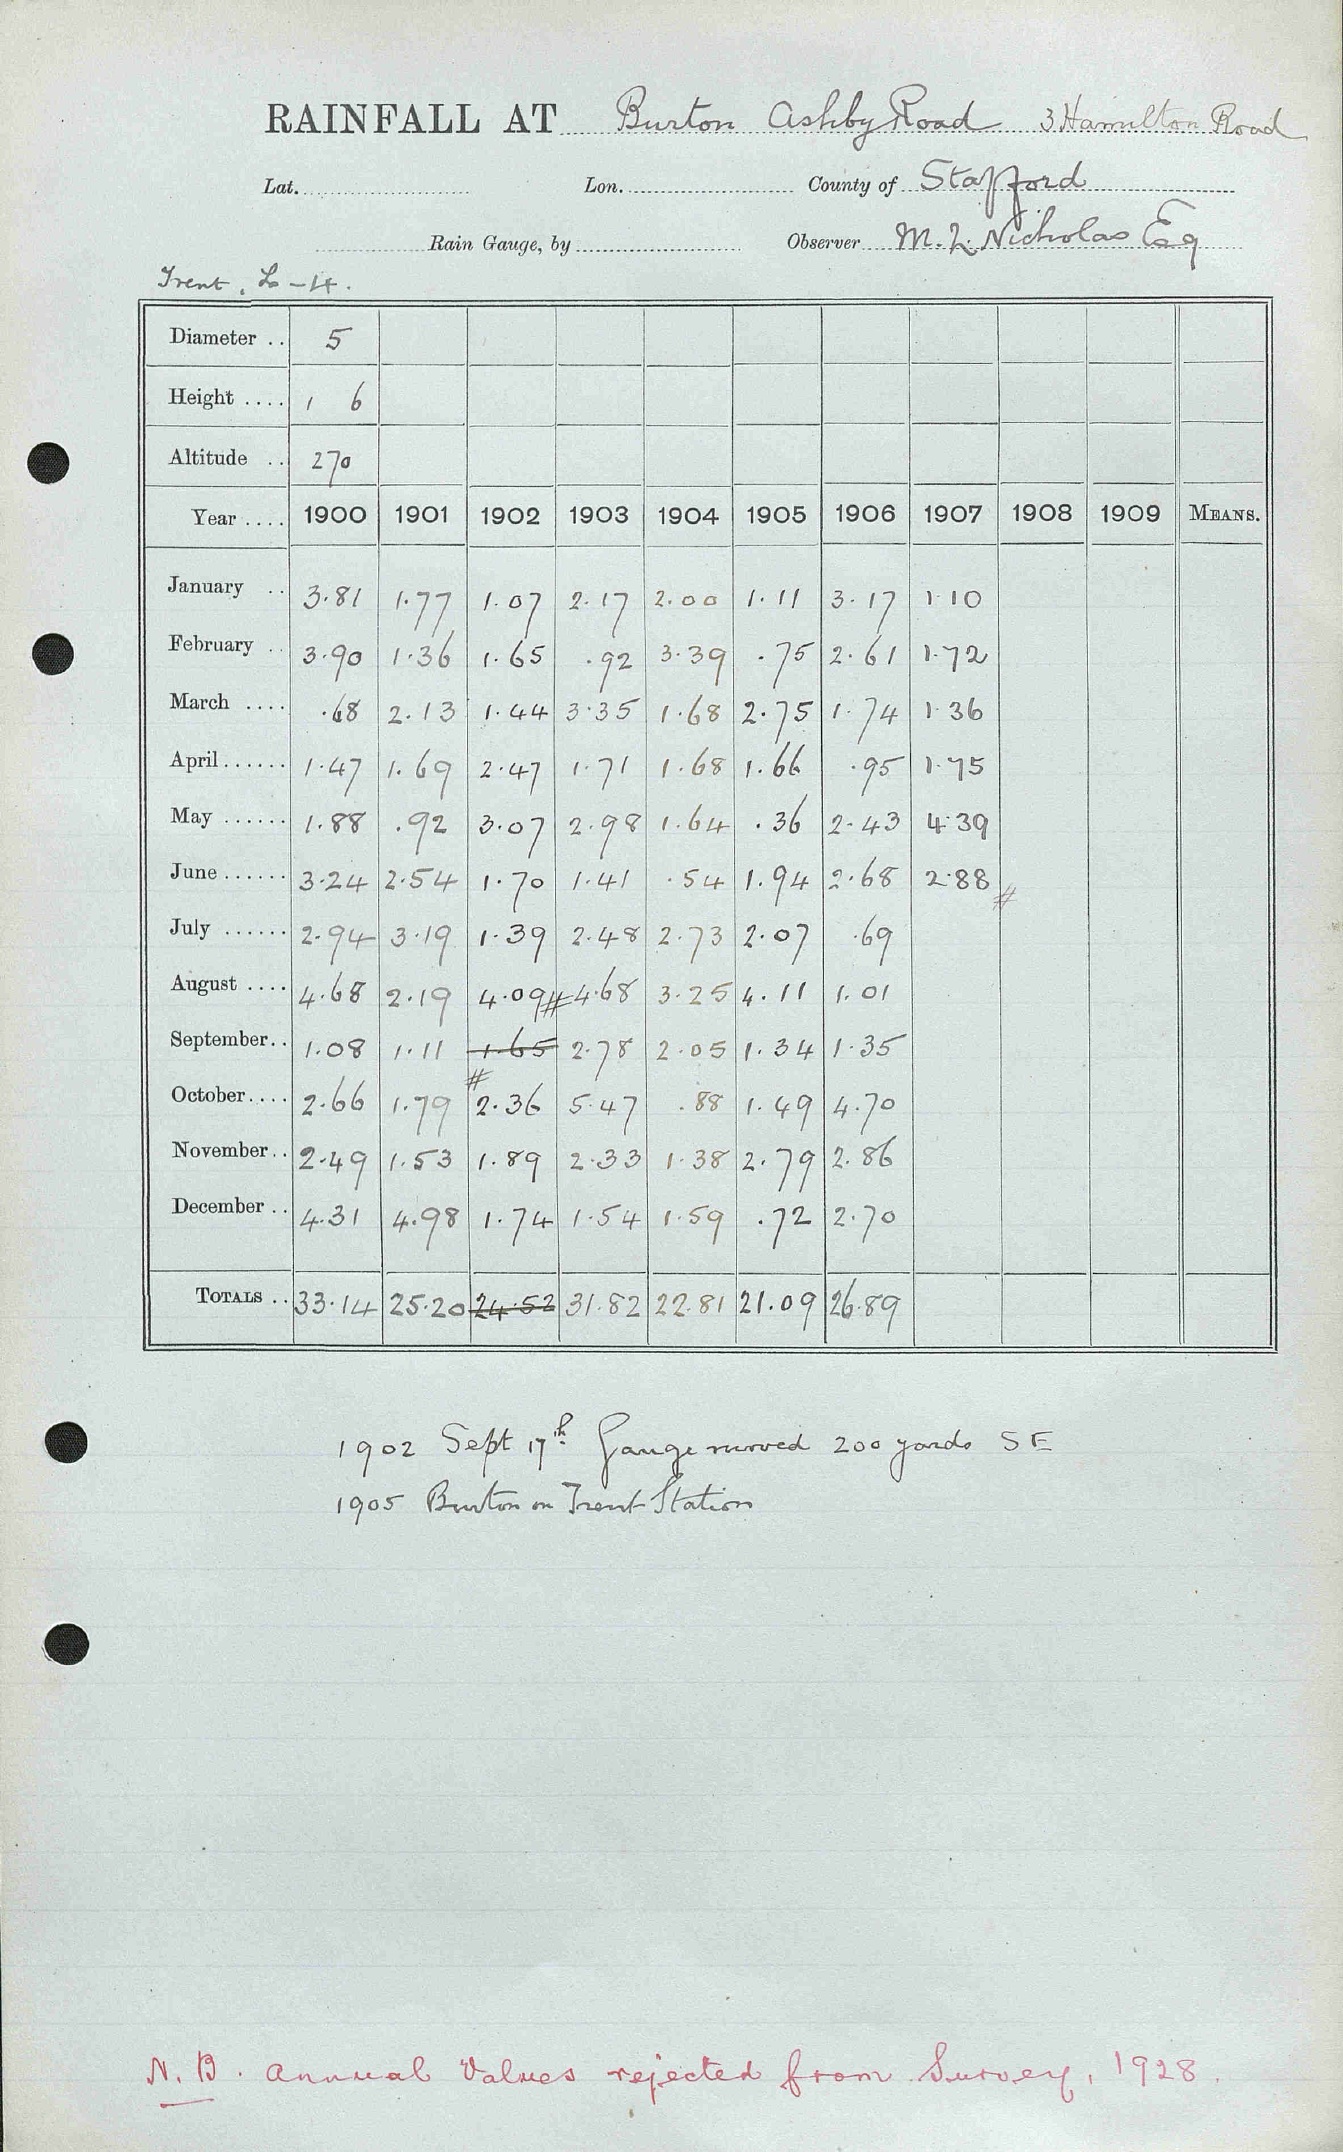 RAINFALL AT Burton Ashby Road 3 Hamilton Road
Lat. Lon. County of Stafford
Rain Gauge, by Observer M. L. Nicholas Esq
Trent. Lo - 14.
Diameter .. 5
Height .... 1 6
Altitude .. 270
Year .... 1900 1901 1902 1903 1904 1905 1906 1907 1908 1909 MEANS.
January .. 3.81 1.77 1.07 2.17 2.00 1.11 3.17 1.10
February .. 3.90 1.36 1.65 .92 3.39 .75 2.61 1.72
March .... .68 2.13 1.44 3.35 1.68 2.75 1.74 1.36
April...... 1.47 1.69 2.47 1.71 1.68 1.66 .95 1.75
May ...... 1.88 .92 3.07 2.98 1.64 .36 2.43 4.39
June...... 3.24 2.54 1.70 1.41 .54 1.94 2.68 2.88 #
July ...... 2.94 3.19 1.39 2.48 2.73 2.07 .69
August .... 4.68 2.19 4.09 # 4.68 3.25 4.11 1.01
September.. 1.08 1.11 1.65 2.78 2.05 1.34 1.35
October.... 2.66 1.79 # 2.36 5.47 .88 1.49 4.70
November.. 2.49 1.53 1.89 2.33 1.38 2.79 2.86
December .. 4.31 4.98 1.74 1.54 1.59 .72 2.70
TOTALS .. 33.14 25.20 24.52 31.82 22.81 21.09 26.89
1902 Sept 17th Gauge moved 200 yards SE
1905 Burton on Trent Station
N.B. Annual Values rejected from Survey, 1928.